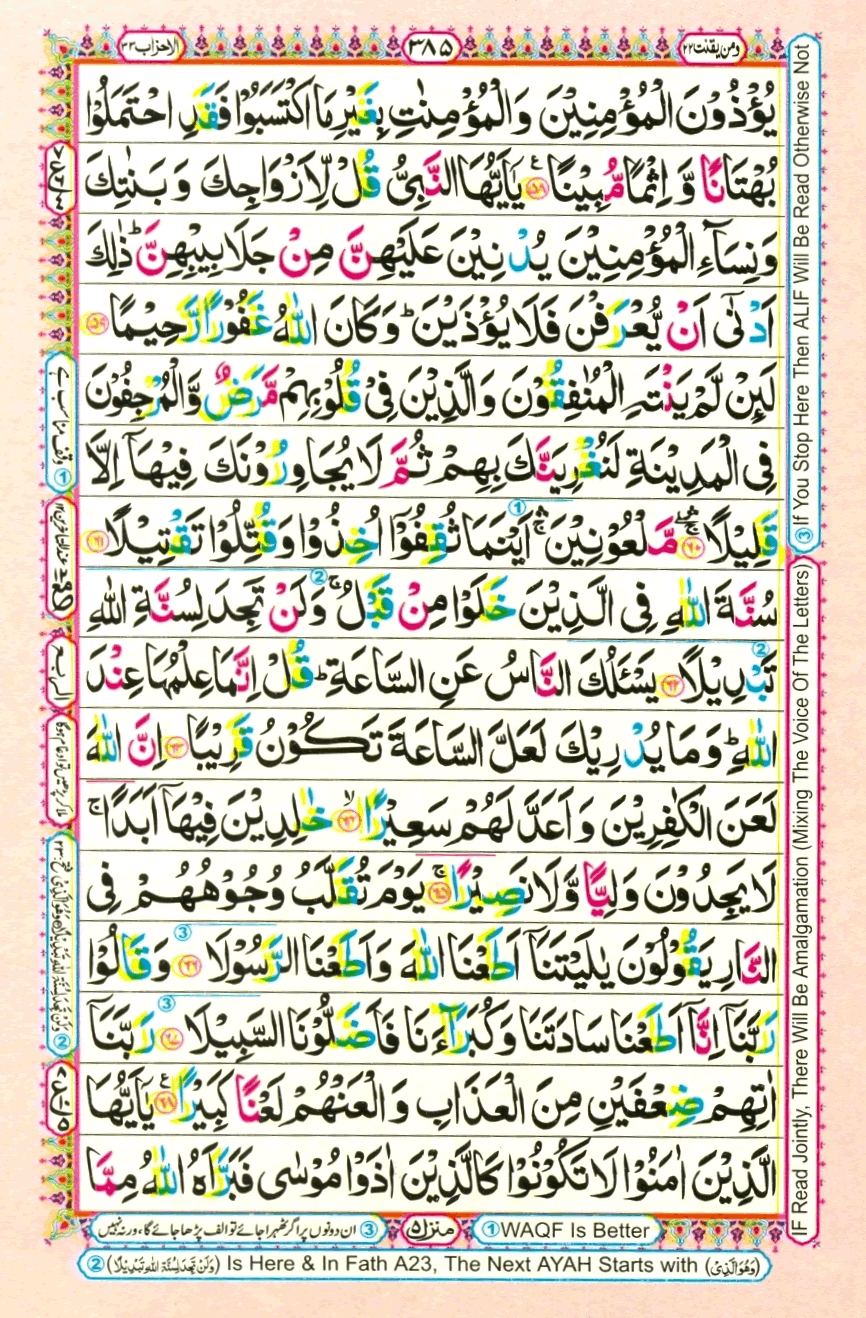 ومن یقنت ۲۲
۳۸۵
الاحزاب ۳۳
یُؤْذُوْنَ الْمُؤْمِنِیْنَ وَالْمُؤْمِنٰتِ بِغَیْرِ مَا اكْتَسَبُوْا فَقَدِ احْتَمَلُوْا
بُهْتَانًا وَّ اِثْمًا مُّبِیْنًا ﴿۵۸﴾ یٰۤاَیُّهَا النَّبِیُّ قُلْ لِّاَزْوَاجِكَ وَ بَنٰتِكَ
وَنِسَآءِ الْمُؤْمِنِیْنَ یُدْنِیْنَ عَلَیْهِنَّ مِنْ جَلَابِیْبِهِنَّ ؕ ذٰلِكَ
اَدْنٰۤی اَنْ یُّعْرَفْنَ فَلَا یُؤْذَیْنَ ؕ وَكَانَ اللّٰهُ غَفُوْرًا رَّحِیْمًا ﴿۵۹﴾
لَىِٕنْ لَّمْ یَنْتَهِ الْمُنٰفِقُوْنَ وَالَّذِیْنَ فِیْ قُلُوْبِهِمْ مَّرَضٌ وَّالْمُرْجِفُوْنَ
فِی الْمَدِیْنَةِ لَنُغْرِیَنَّكَ بِهِمْ ثُمَّ لَا یُجَاوِرُوْنَكَ فِیْهَاۤ اِلَّا
قَلِیْلًا ﴿۶۰﴾ مَّلْعُوْنِیْنَ ۛۚ اَیْنَمَا ثُقِفُوْۤا اُخِذُوْا وَقُتِّلُوْا تَقْتِیْلًا ﴿۶۱﴾
سُنَّةَ اللّٰهِ فِی الَّذِیْنَ خَلَوْا مِنْ قَبْلُ ۚ وَلَنْ تَجِدَ لِسُنَّةِ اللّٰهِ
تَبْدِیْلًا ﴿۶۲﴾ یَسْـَٔلُكَ النَّاسُ عَنِ السَّاعَةِ ؕ قُلْ اِنَّمَا عِلْمُهَا عِنْدَ
اللّٰهِ ؕ وَمَا یُدْرِیْكَ لَعَلَّ السَّاعَةَ تَكُوْنُ قَرِیْبًا ﴿۶۳﴾ اِنَّ اللّٰهَ
لَعَنَ الْكٰفِرِیْنَ وَاَعَدَّ لَهُمْ سَعِیْرًا ﴿۶۴﴾ خٰلِدِیْنَ فِیْهَاۤ اَبَدًا ۚ
لَا یَجِدُوْنَ وَلِیًّا وَّلَا نَصِیْرًا ﴿۶۵﴾ یَوْمَ تُقَلَّبُ وُجُوْهُهُمْ فِی
النَّارِ یَقُوْلُوْنَ یٰلَیْتَنَاۤ اَطَعْنَا اللّٰهَ وَاَطَعْنَا الرَّسُوْلَا ﴿۶۶﴾ وَقَالُوْا
رَبَّنَاۤ اِنَّاۤ اَطَعْنَا سَادَتَنَا وَكُبَرَآءَنَا فَاَضَلُّوْنَا السَّبِیْلَا ﴿۶۷﴾ رَبَّنَاۤ
اٰتِهِمْ ضِعْفَیْنِ مِنَ الْعَذَابِ وَالْعَنْهُمْ لَعْنًا كَبِیْرًا ﴿۶۸﴾ یٰۤاَیُّهَا
الَّذِیْنَ اٰمَنُوْا لَا تَكُوْنُوْا كَالَّذِیْنَ اٰذَوْا مُوْسٰی فَبَرَّاَهُ اللّٰهُ مِمَّا
① WAQF Is Better
منزل ۵
③ ان دونوں پر اگر ٹھہرا جائے تو الف پڑھا جائے گا، ورنہ نہیں
② (وَلَنْ تَجِدَ لِسُنَّةِ اللّٰهِ تَبْدِیْلًا) Is Here & In Fath A23, The Next AYAH Starts with (وَهُوَ الَّذِیْ)
③ If You Stop Here Then ALIF Will Be Read Otherwise Not
IF Read Jointly, There Will Be Amalgamation (Mixing The Voice Of The Letters)